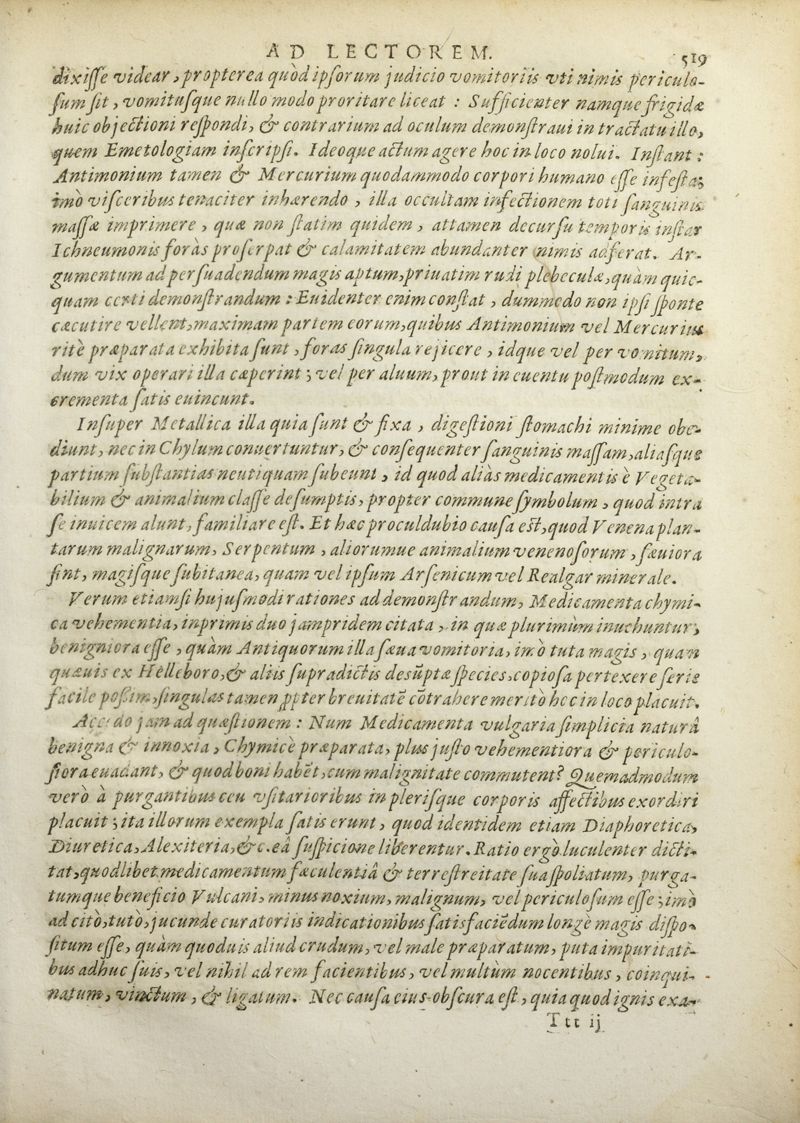 AD LECTOREM.
519
dixisse videar, propterea quòd ipsorum judicio vomitoriis vti nimis periculo-
sum sit, vomitusque nullo modo proritare liceat : Sufficienter namque frigidæ
huic objectioni respondi, & contrarium ad oculum demonstraui in tractatu illo,
quem Emetologiam inscripsi. Ideoque actum agere hoc in loco nolui. Instant :
Antimonium tamen & Mercurium quodammodo corpori humano esse infesta;
imò visceribus tenaciter inhærendo, illa occultam infectionem toti sanguinis
massæ imprimere, quæ non statim quidem, attamen decursu temporis instar
Ichneumonis foràs proserpat & calamitatem abundanter nimis adferat. Ar-
gumentum ad persuadendum magis aptum, priuatim rudi plebeculæ, quàm quic-
quam certi demonstrandum : Euidenter enim constat, dummodo non ipsi sponte
cæcutire vellent, maximam partem eorum, quibus Antimonium vel Mercurius
ritè præparata exhibita sunt, foras singula rejicere, idque vel per vomitum,
dum vix operari illa cæperint ; vel per aluum, prout in euentu postmodum ex-
crementa satis euincunt.
Insuper Metallica illa quia sunt & fixa, digestioni stomachi minime obe-
diunt, nec in Chylum conuertuntur, & consequenter sanguinis massam, aliasque
partium substantias neutiquam subeunt, id quod aliàs medicamentis è Vegeta-
bilium & animalium classe desumptis, propter commune symbolum, quod intra
se inuicem alunt, familiare est. Et hæc proculdubio causa est, quod Venena plan-
tarum malignarum, Serpentum, aliorumue animalium venenosorum, sæuiora
sint, magisque subitanea, quam vel ipsum Arsenicum vel Realgar minerale.
Verum etiamsi hujusmodi rationes ad demonstrandum, Medicamenta chymi-
ca vehementia, inprimis duo jampridem citata, in quæ plurimùm inuehuntur,
benigniora esse, quàm Antiquorum illa sæua vomitoria, imò tuta magis, quam
quæuis ex Helleboro, & aliis supradictis desũptæ species, copiosa pertexere serie
facile possim, singulas tamen ꝓpter breuitatẽ cõtrahere meritò hoc in loco placuit.
Accedo jam ad quæstionem : Num Medicamenta vulgaria simplicia naturâ
benigna & innoxia, Chymicè præparata, plus justo vehementiora & periculo-
siora euadant, & quod boni habẽt, cum malignitate commutent? Quemadmodum
verò à purgantibus ceu vsitarioribus in plerisque corporis affectibus exordiri
placuit ; ita illorum exempla satis erunt, quod identidem etiam Diaphoretica,
Diuretica, Alexiteria, &c. eâ suspicione liberentur. Ratio ergò luculenter dicti-
tat, quodlibet medicamentum fæculentiâ & terrestreitate sua spoliatum, purga-
tumque beneficio Vulcani, minus noxium, malignum, vel periculosum esse ; imò
ad citò, tutò, jucunde curatoriis indicationibus satisfaciẽdum longè magis dispo-
situm esse, quàm quoduis aliud crudum, vel male præparatum, puta impuritati-
bus adhuc suis, vel nihil ad rem facientibus, vel multùm nocentibus, coinqui-
natum, vinctum, & ligatum. Nec causa eius obscura est, quia quod ignis exa-
Ttt ij